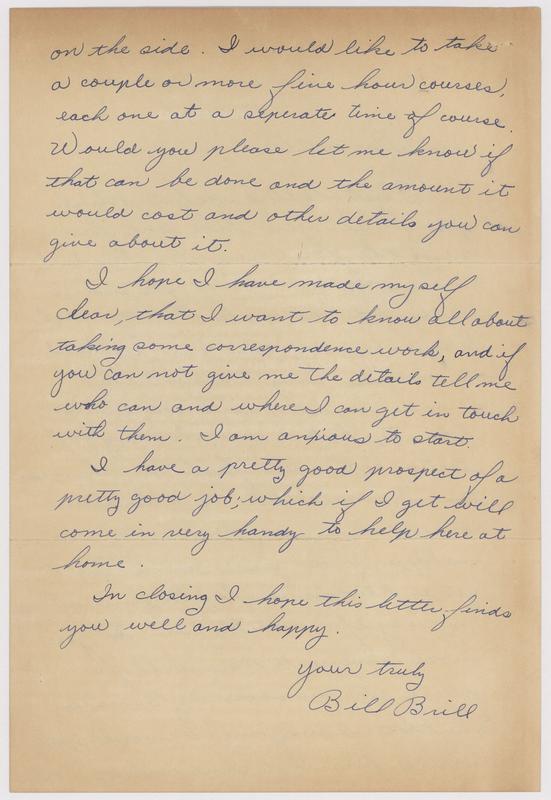 on the side. I would like to take
a couple or more five hour courses,
each one at a seperate time of course.
Would you please let me know if
that can be done and the amount it
would cost and other details you can
give about it.
I hope I have made myself
clear, that I want to know all about
taking some correspondence work, and if
you can not give me the details tell me
who can and where I can get in touch
with them. I am anxious to start.
I have a pretty good prospect of a
pretty good job; which if I get will
come in very handy to help here at
home.
In closing I hope this letter finds
you well and happy.
Your truly
Bill Brill